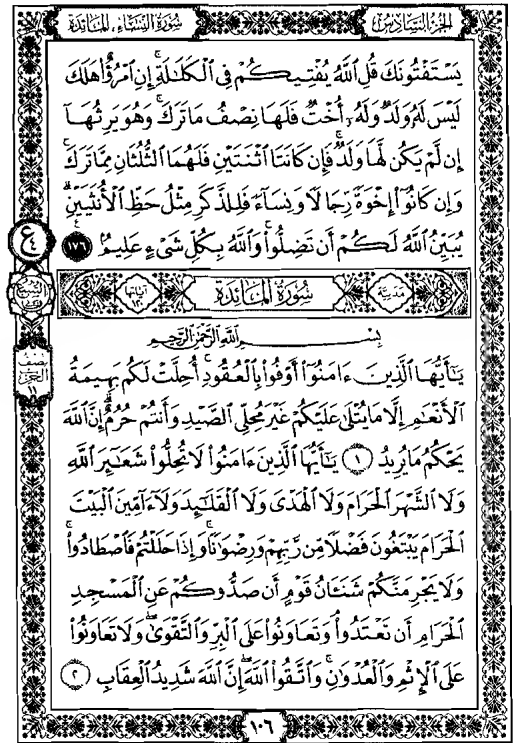 الجزء السادس
سورة النساء، المائدة
يَسْتَفْتُونَكَ قُلِ ٱللَّهُ يُفْتِيكُمْ فِى ٱلْكَلَٰلَةِ ۚ إِنِ ٱمْرُؤٌا۟ هَلَكَ
لَيْسَ لَهُۥ وَلَدٌ وَلَهُۥٓ أُخْتٌ فَلَهَا نِصْفُ مَا تَرَكَ ۚ وَهُوَ يَرِثُهَآ
إِن لَّمْ يَكُن لَّهَا وَلَدٌ ۚ فَإِن كَانَتَا ٱثْنَتَيْنِ فَلَهُمَا ٱلثُّلُثَانِ مِمَّا تَرَكَ ۚ
وَإِن كَانُوٓا۟ إِخْوَةً رِّجَالًا وَنِسَآءً فَلِلذَّكَرِ مِثْلُ حَظِّ ٱلْأُنثَيَيْنِ ۗ
يُبَيِّنُ ٱللَّهُ لَكُمْ أَن تَضِلُّوا۟ ۗ وَٱللَّهُ بِكُلِّ شَىْءٍ عَلِيمٌۢ ١٧٦
ع ٤
مدنية سورة المائدة آياتها ١٢٠
بِسْمِ ٱللَّهِ ٱلرَّحْمَٰنِ ٱلرَّحِيمِ
يَٰٓأَيُّهَا ٱلَّذِينَ ءَامَنُوٓا۟ أَوْفُوا۟ بِٱلْعُقُودِ ۚ أُحِلَّتْ لَكُم بَهِيمَةُ
ٱلْأَنْعَٰمِ إِلَّا مَا يُتْلَىٰ عَلَيْكُمْ غَيْرَ مُحِلِّى ٱلصَّيْدِ وَأَنتُمْ حُرُمٌ ۗ إِنَّ ٱللَّهَ
يَحْكُمُ مَا يُرِيدُ ١ يَٰٓأَيُّهَا ٱلَّذِينَ ءَامَنُوا۟ لَا تُحِلُّوا۟ شَعَٰٓئِرَ ٱللَّهِ
وَلَا ٱلشَّهْرَ ٱلْحَرَامَ وَلَا ٱلْهَدْىَ وَلَا ٱلْقَلَٰٓئِدَ وَلَآ ءَآمِّينَ ٱلْبَيْتَ
ٱلْحَرَامَ يَبْتَغُونَ فَضْلًا مِّن رَّبِّهِمْ وَرِضْوَٰنًا ۚ وَإِذَا حَلَلْتُمْ فَٱصْطَادُوا۟ ۚ
وَلَا يَجْرِمَنَّكُمْ شَنَـَٔانُ قَوْمٍ أَن صَدُّوكُمْ عَنِ ٱلْمَسْجِدِ
ٱلْحَرَامِ أَن تَعْتَدُوا۟ ۘ وَتَعَاوَنُوا۟ عَلَى ٱلْبِرِّ وَٱلتَّقْوَىٰ ۖ وَلَا تَعَاوَنُوا۟
عَلَى ٱلْإِثْمِ وَٱلْعُدْوَٰنِ ۚ وَٱتَّقُوا۟ ٱللَّهَ ۖ إِنَّ ٱللَّهَ شَدِيدُ ٱلْعِقَابِ ٢
١٠٦